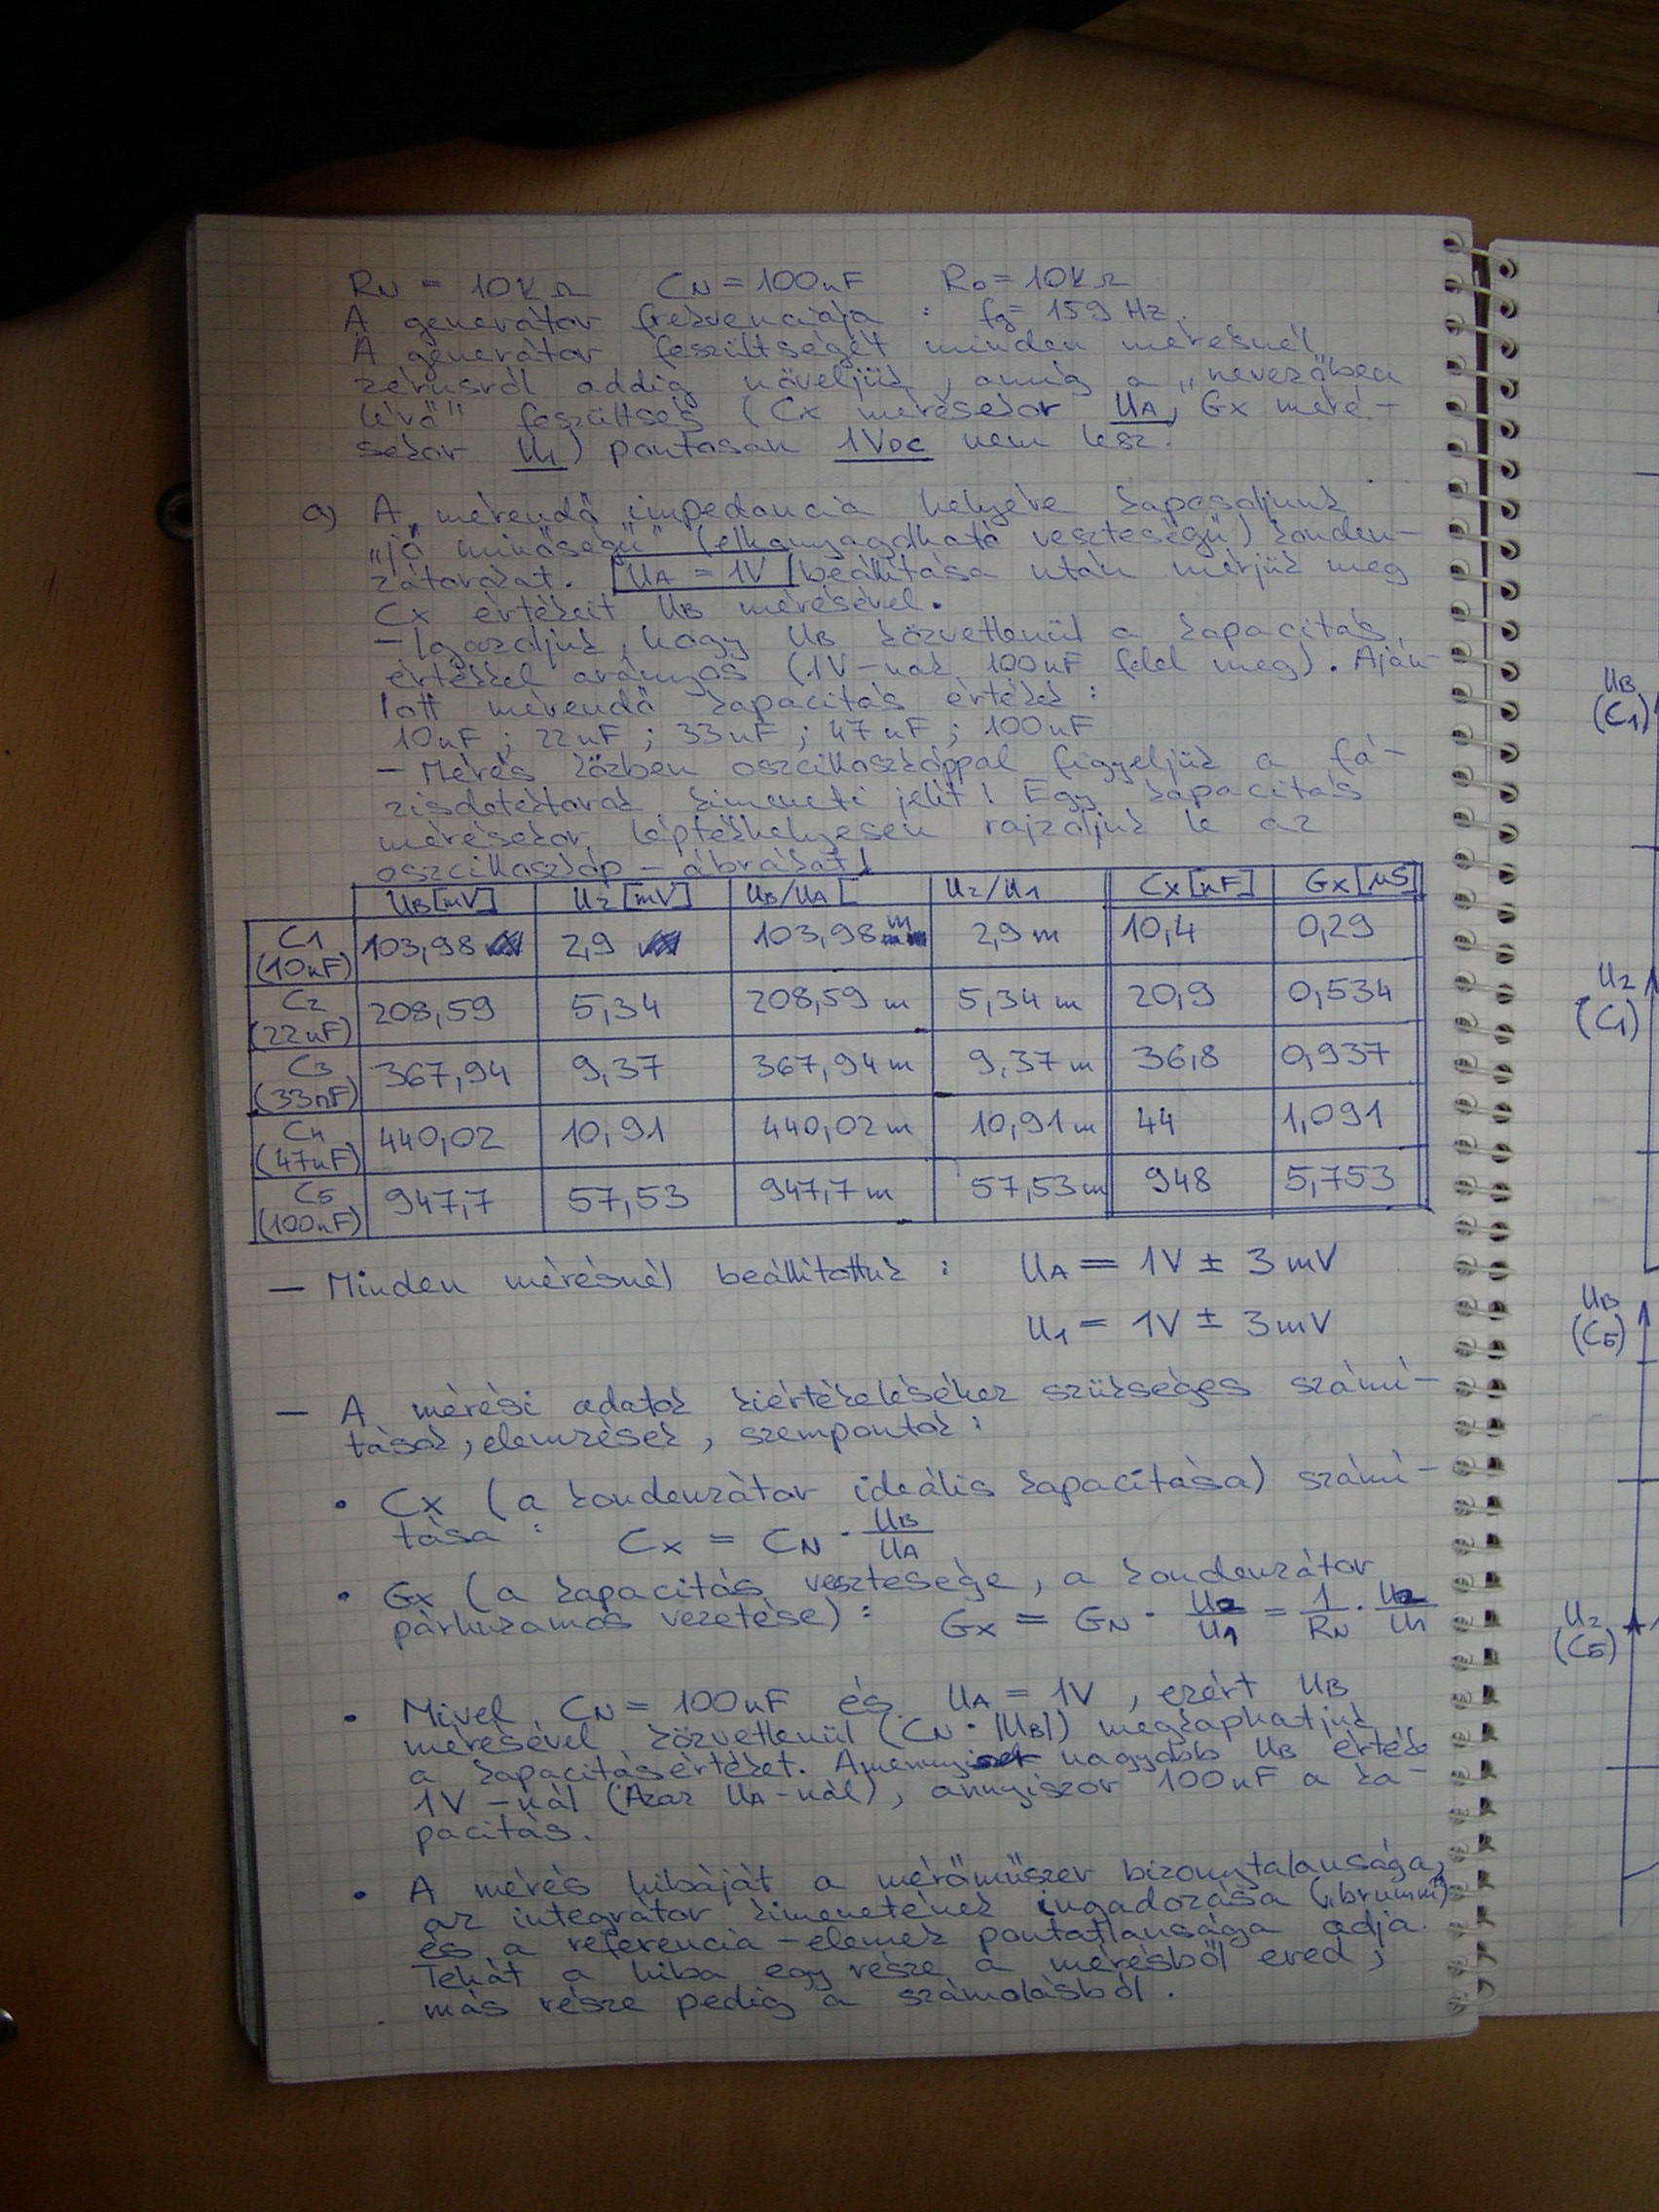 RN = 10kΩ CN = 100nF R0 = 10kΩ
A generátor frekvenciája : fg = 159 Hz.
A generátor feszültségét minden mérésnél
zérusról addig növeljük, amíg a „nevezőben
lévő" feszültség (Cx mérésekor UA, Gx méré-
sekor U1) pontosan 1VDC nem lesz.
a) A mérendő impedancia helyére kapcsoljunk
„jó minőségű" (elhanyagolható veszteségű) konden-
zátorokat. UA = 1V beállítása után mérjük meg
Cx értékeit UB mérésével.
- Igazoljuk, hogy UB közvetlenül a kapacitás
értékkel arányos (1V-nak 100nF felel meg). Aján-
lott mérendő kapacitás értékek :
10nF ; 22nF ; 33nF ; 47nF ; 100nF
- Mérés közben oszcilloszkóppal figyeljük a fá-
zisdetektorok kimeneti jelét! Egy kapacitás
mérésekor léptékhelyesen rajzoljuk le az
oszcilloszkóp-ábrákat!
UB[mV] U2[mV] UB/UA [ U2/U1 Cx[nF] Gx[µS]
C1 (10nF) 103,98 2,9 103,98 m 2,9 m 10,4 0,29
C2 (22nF) 208,59 5,34 208,59 m 5,34 m 20,9 0,534
C3 (33nF) 367,94 9,37 367,94 m 9,37 m 36,8 0,937
C4 (47nF) 440,02 10,91 440,02 m 10,91 m 44 1,091
C5 (100nF) 947,7 57,53 947,7 m 57,53 m 948 5,753
- Minden mérésnél beállítottuk : UA = 1V ± 3mV
U1 = 1V ± 3mV
- A mérési adatok kiértékeléséhez szükséges számí-
tások, elemzések, szempontok :
• Cx (a kondenzátor ideális kapacitása) számí-
tása : Cx = CN · UB/UA
• Gx (a kapacitás vesztesége, a kondenzátor
párhuzamos vezetése) : Gx = GN · U2/U1 = 1/RN · U2/U1
• Mivel CN = 100nF és UA = 1V, ezért UB
mérésével közvetlenül (CN · |UB|) megkaphatjuk
a kapacitásértéket. nagyobb UB értéke
1V-nál (Azaz UA-nál), annyiszor 100nF a ka-
pacitás.
• A mérés hibáját a mérőműszer bizonytalansága,
az integrátor kimenetének ingadozása („brumm")
és a referencia-elemek pontatlansága adja.
Tehát a hiba egy része a mérésből ered,
más része pedig a számolásból.
UB
(C1)
U2
(C1)
UB
(C5)
U2
(C5)